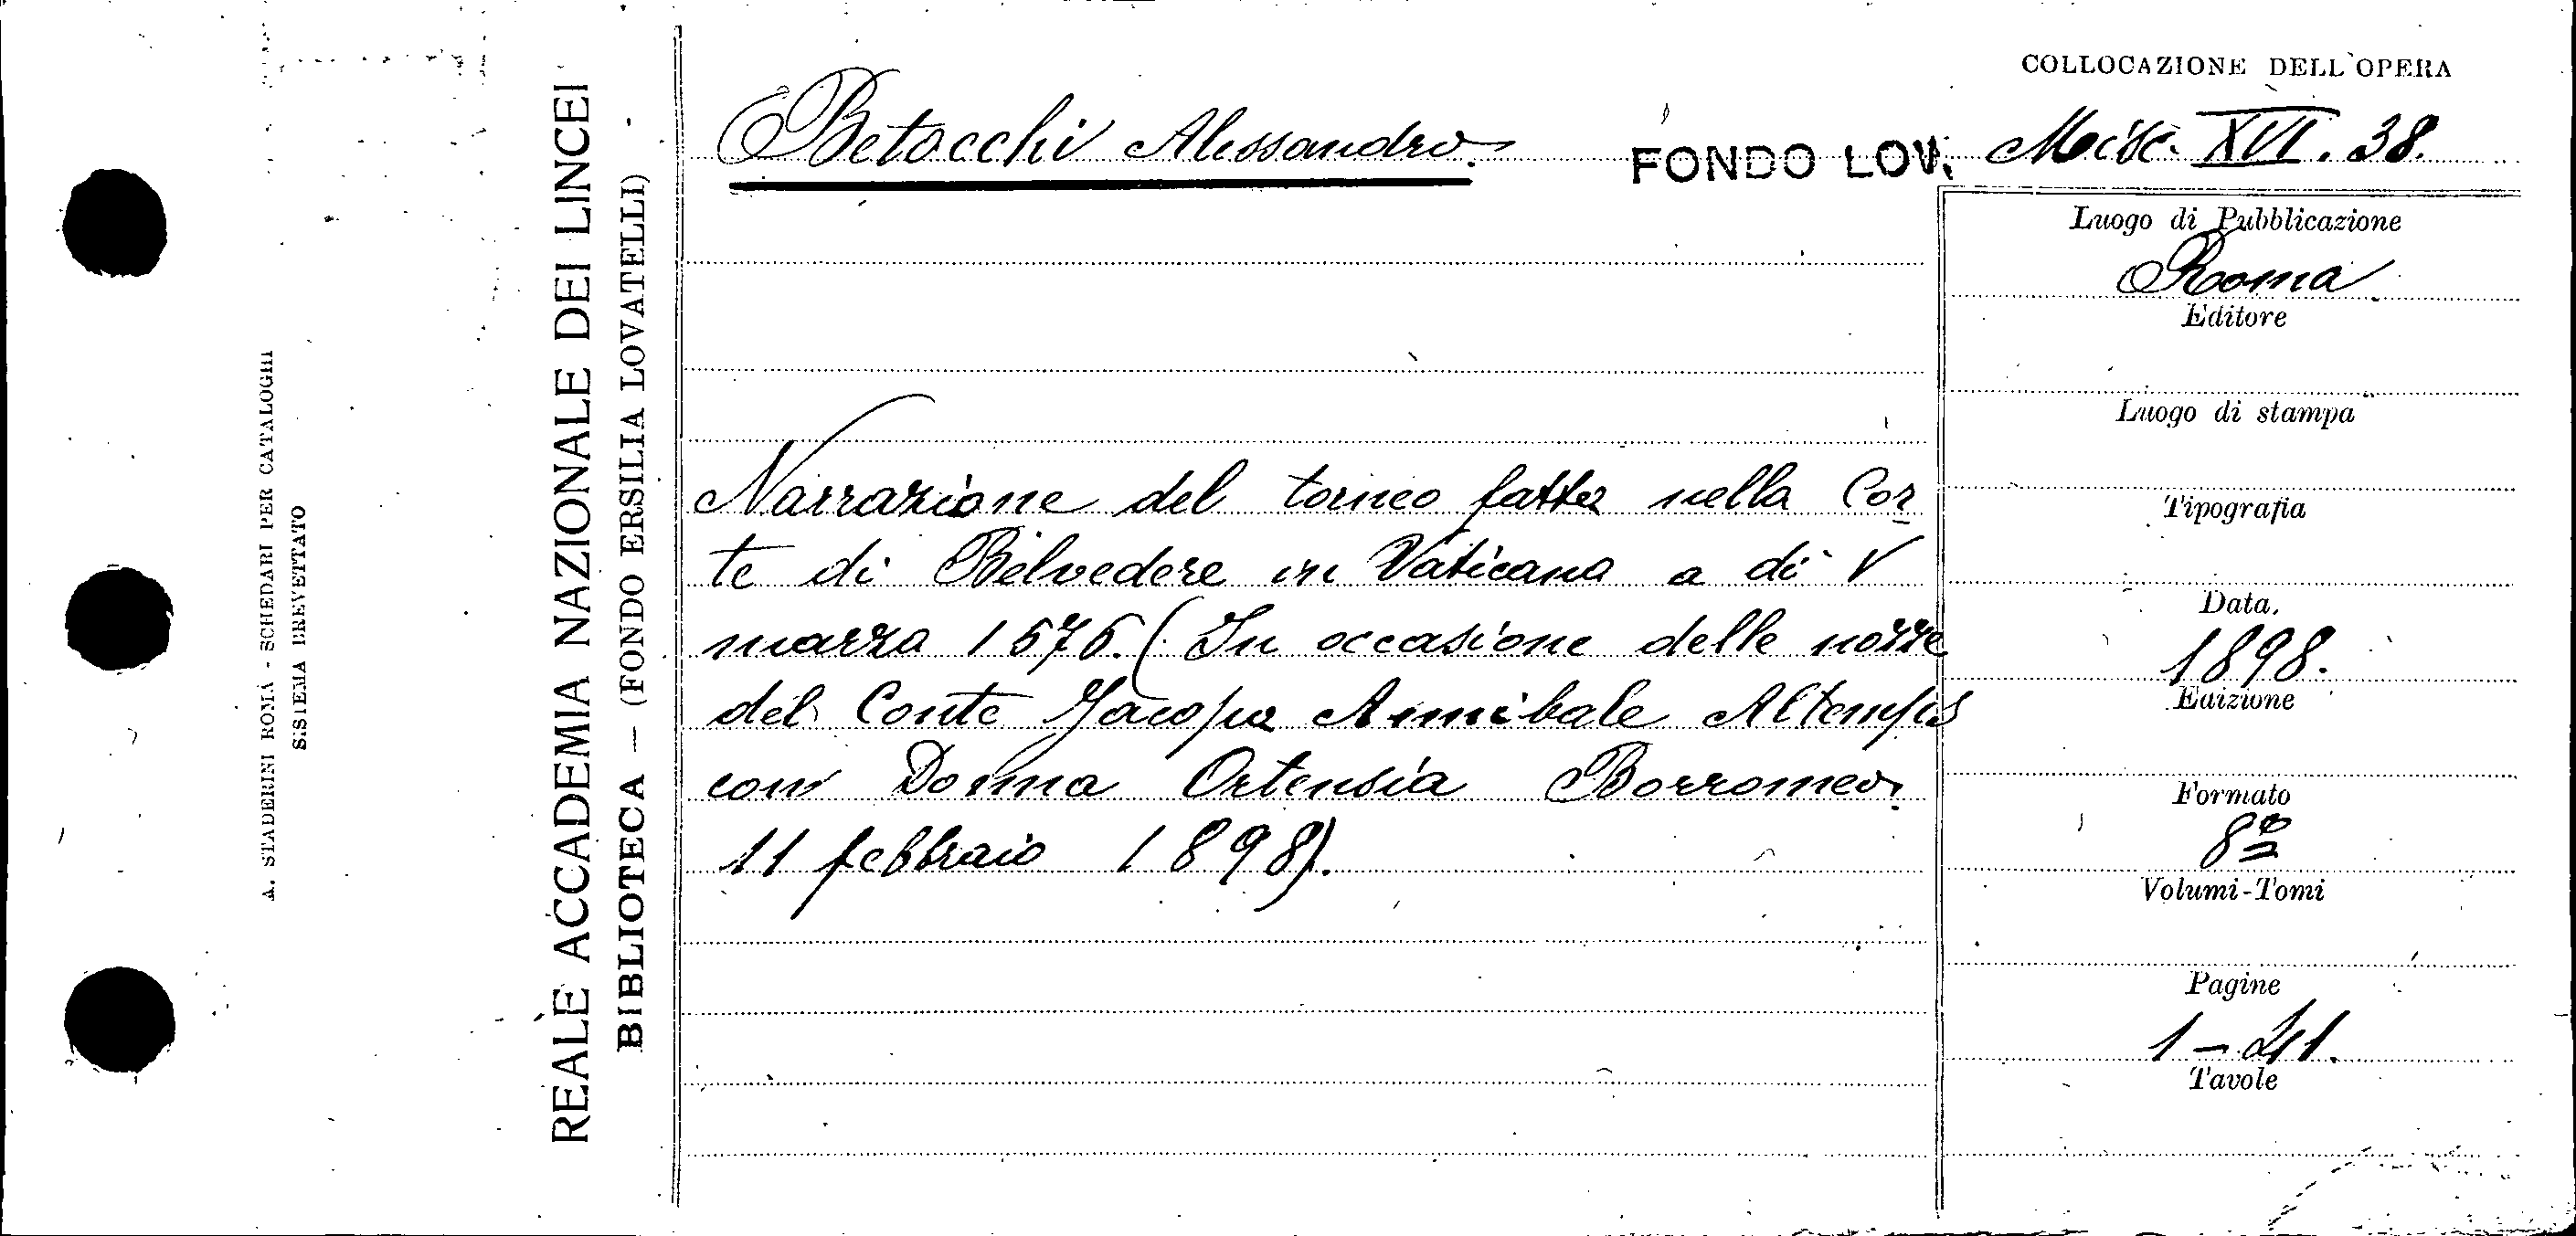 COLLOCAZIONE DELL'OPERA
Betocchi Alessandro.
FONDO LOV. Misc. XVI. 38.
Luogo di Pubblicazione
Roma
Editore
Luogo di stampa
Tipografia
Data.
1898.
Edizione
Formato
8º
Volumi-Tomi
Pagine
1-41.
Tavole
Narrazione del torneo fatto nella Cor
te di Belvedere in Vaticano a di V
marzo 1565. (In occasione delle nozze
del Conte Jacopo Annibale Altemps
con Donna Ortensia Borromeo.
11 febbraio 1898).
REALE ACCADEMIA NAZIONALE DEI LINCEI
BIBLIOTECA — (FONDO ERSILIA LOVATELLI)
A. STADERINI ROMA - SCHEDARI PER CATALOGHI
SISTEMA BREVETTATO